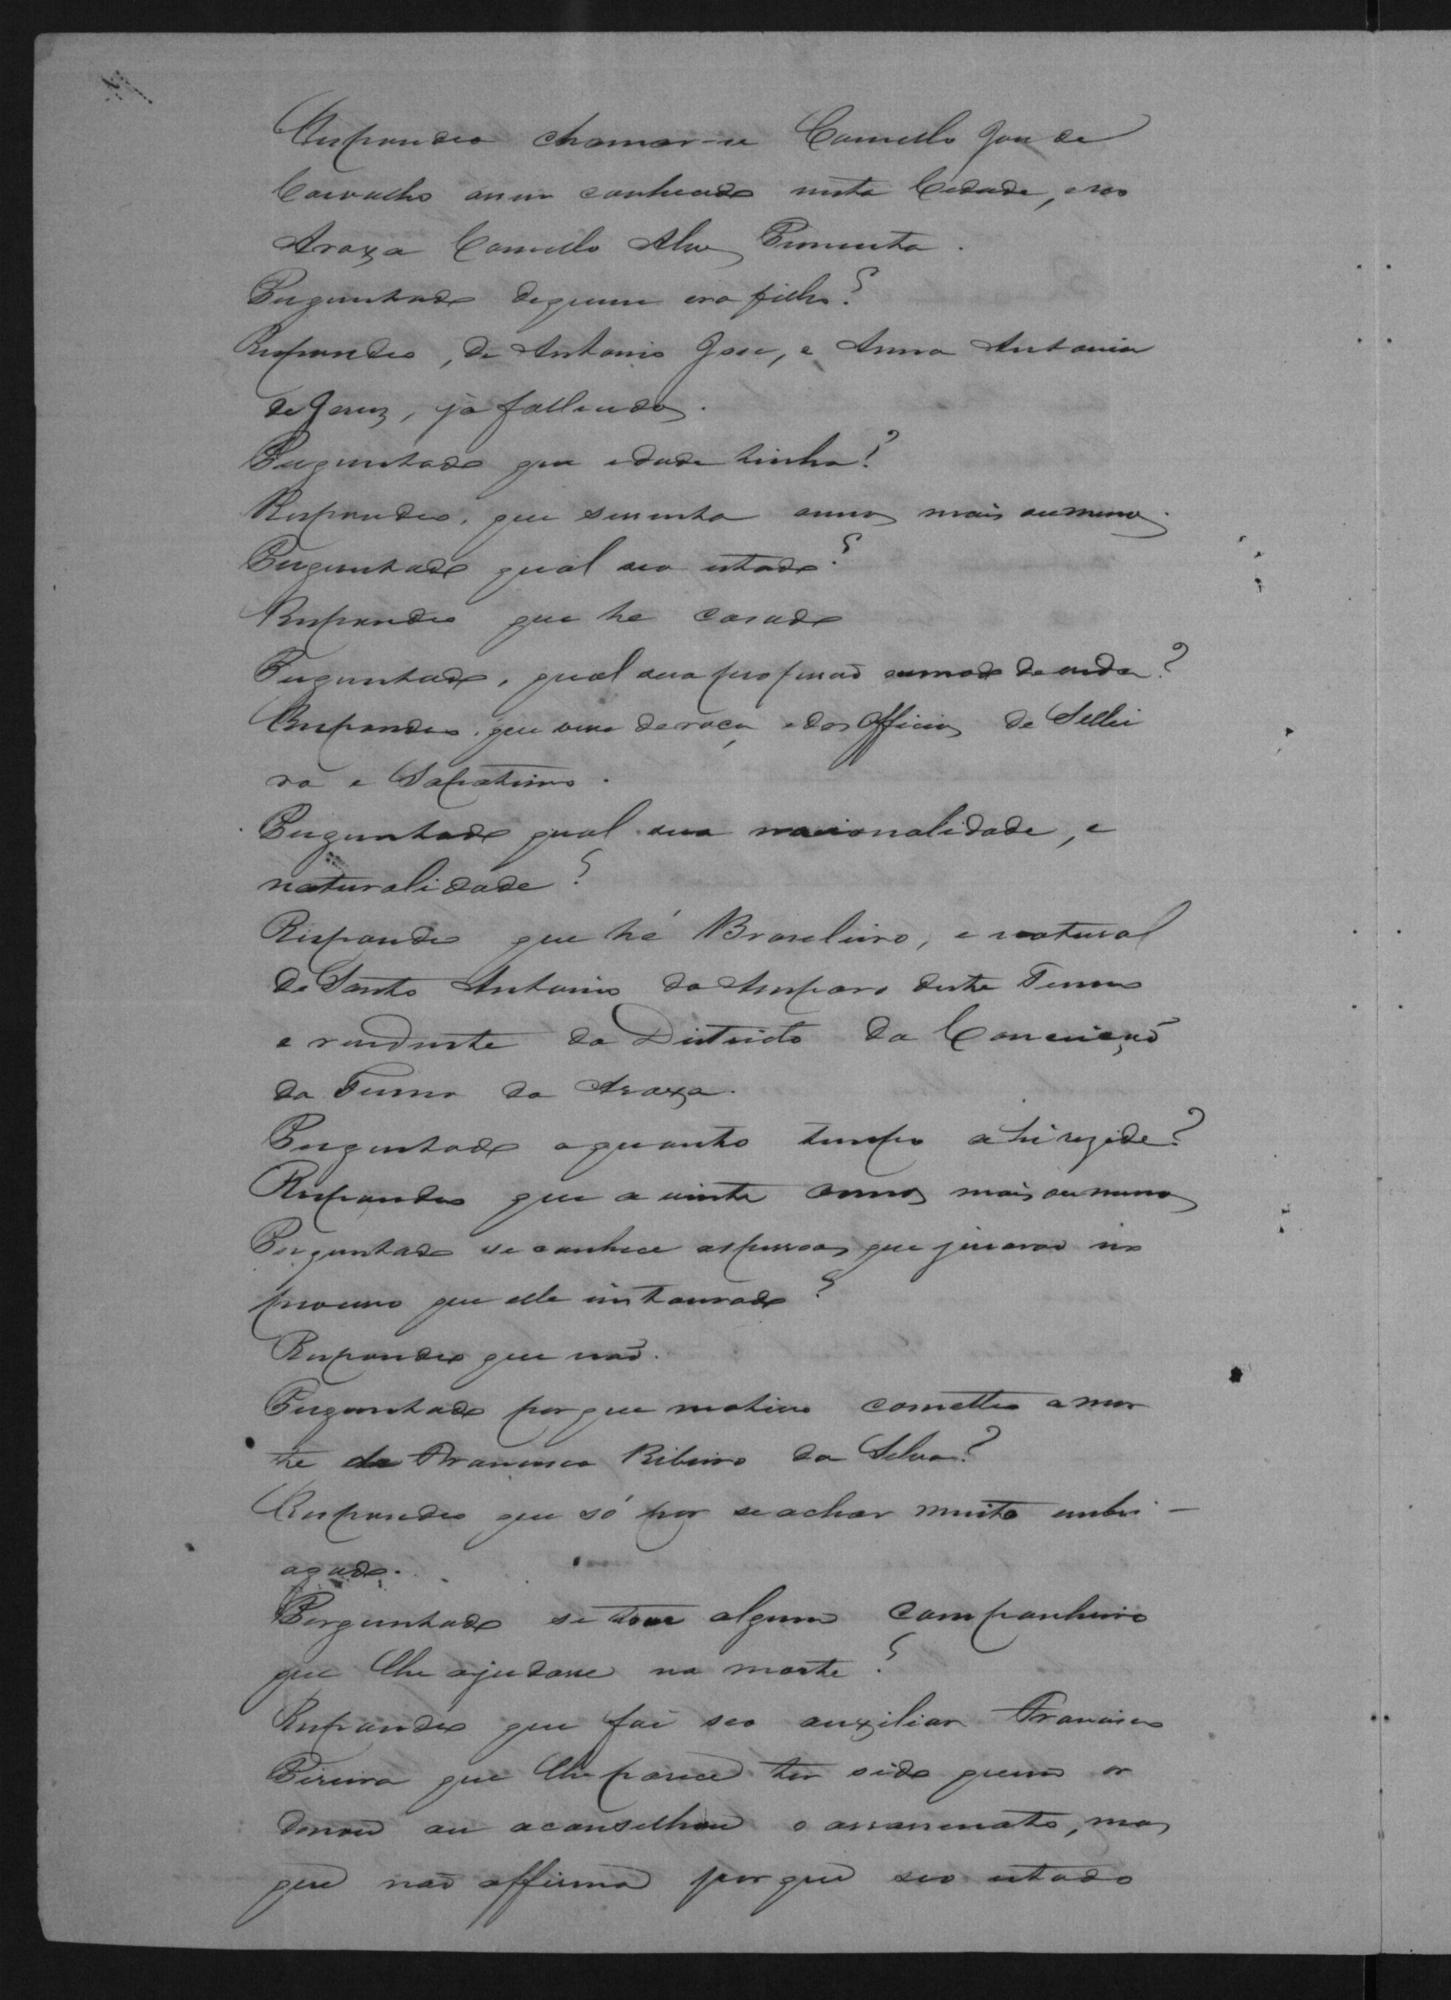 Respondeo chamar-se Camillo José de
Carvalho assim conhecido nesta Cidade, e no
Araxa Camillo Alves Pimenta.
Perguntado de quem era filho?
Respondeo, de Antonio José, e Anna Antonia
de Jesus, já fallecidos.
Perguntado que edade tinha?
Respondeo, que secenta annos mais ou menos.
Perguntado qual seo estado?
Respondeo que he casado
Perguntado, qual sua profissaõ ou modo de vida?
Respondeo, que vive de roça e dos Officios de Sellei
ro e Sapateiro.
Perguntado qual sua nacionalidade, e
naturalidade?
Respondeo que hé Brasileiro, e natural
de Santo Antonio do Amparo deste Termo
e residente do Districto da Conceiçaõ
do Termo do Araxa.
Perguntado a quanto tempo ahi rezide?
Respondeo que a vinte annos mais ou menos
Perguntado se conhece as pessoas que juraraõ no
processo que elle instaurado?
Respondeo que naõ.
Perguntado por que motivo cometteo a mor
te de Francisco Ribeiro da Silva?
Respondeo que só por se achar muito embri-
agado.
Perguntado se teve algum companheiro
que lhe ajudasse na morte?
Respondeo que foi seo auxiliar Francisco
Pereira que lhe parece ter sido quem or
denou ou aconselhou o assassinato, mas
que naõ affirma por que seo estado